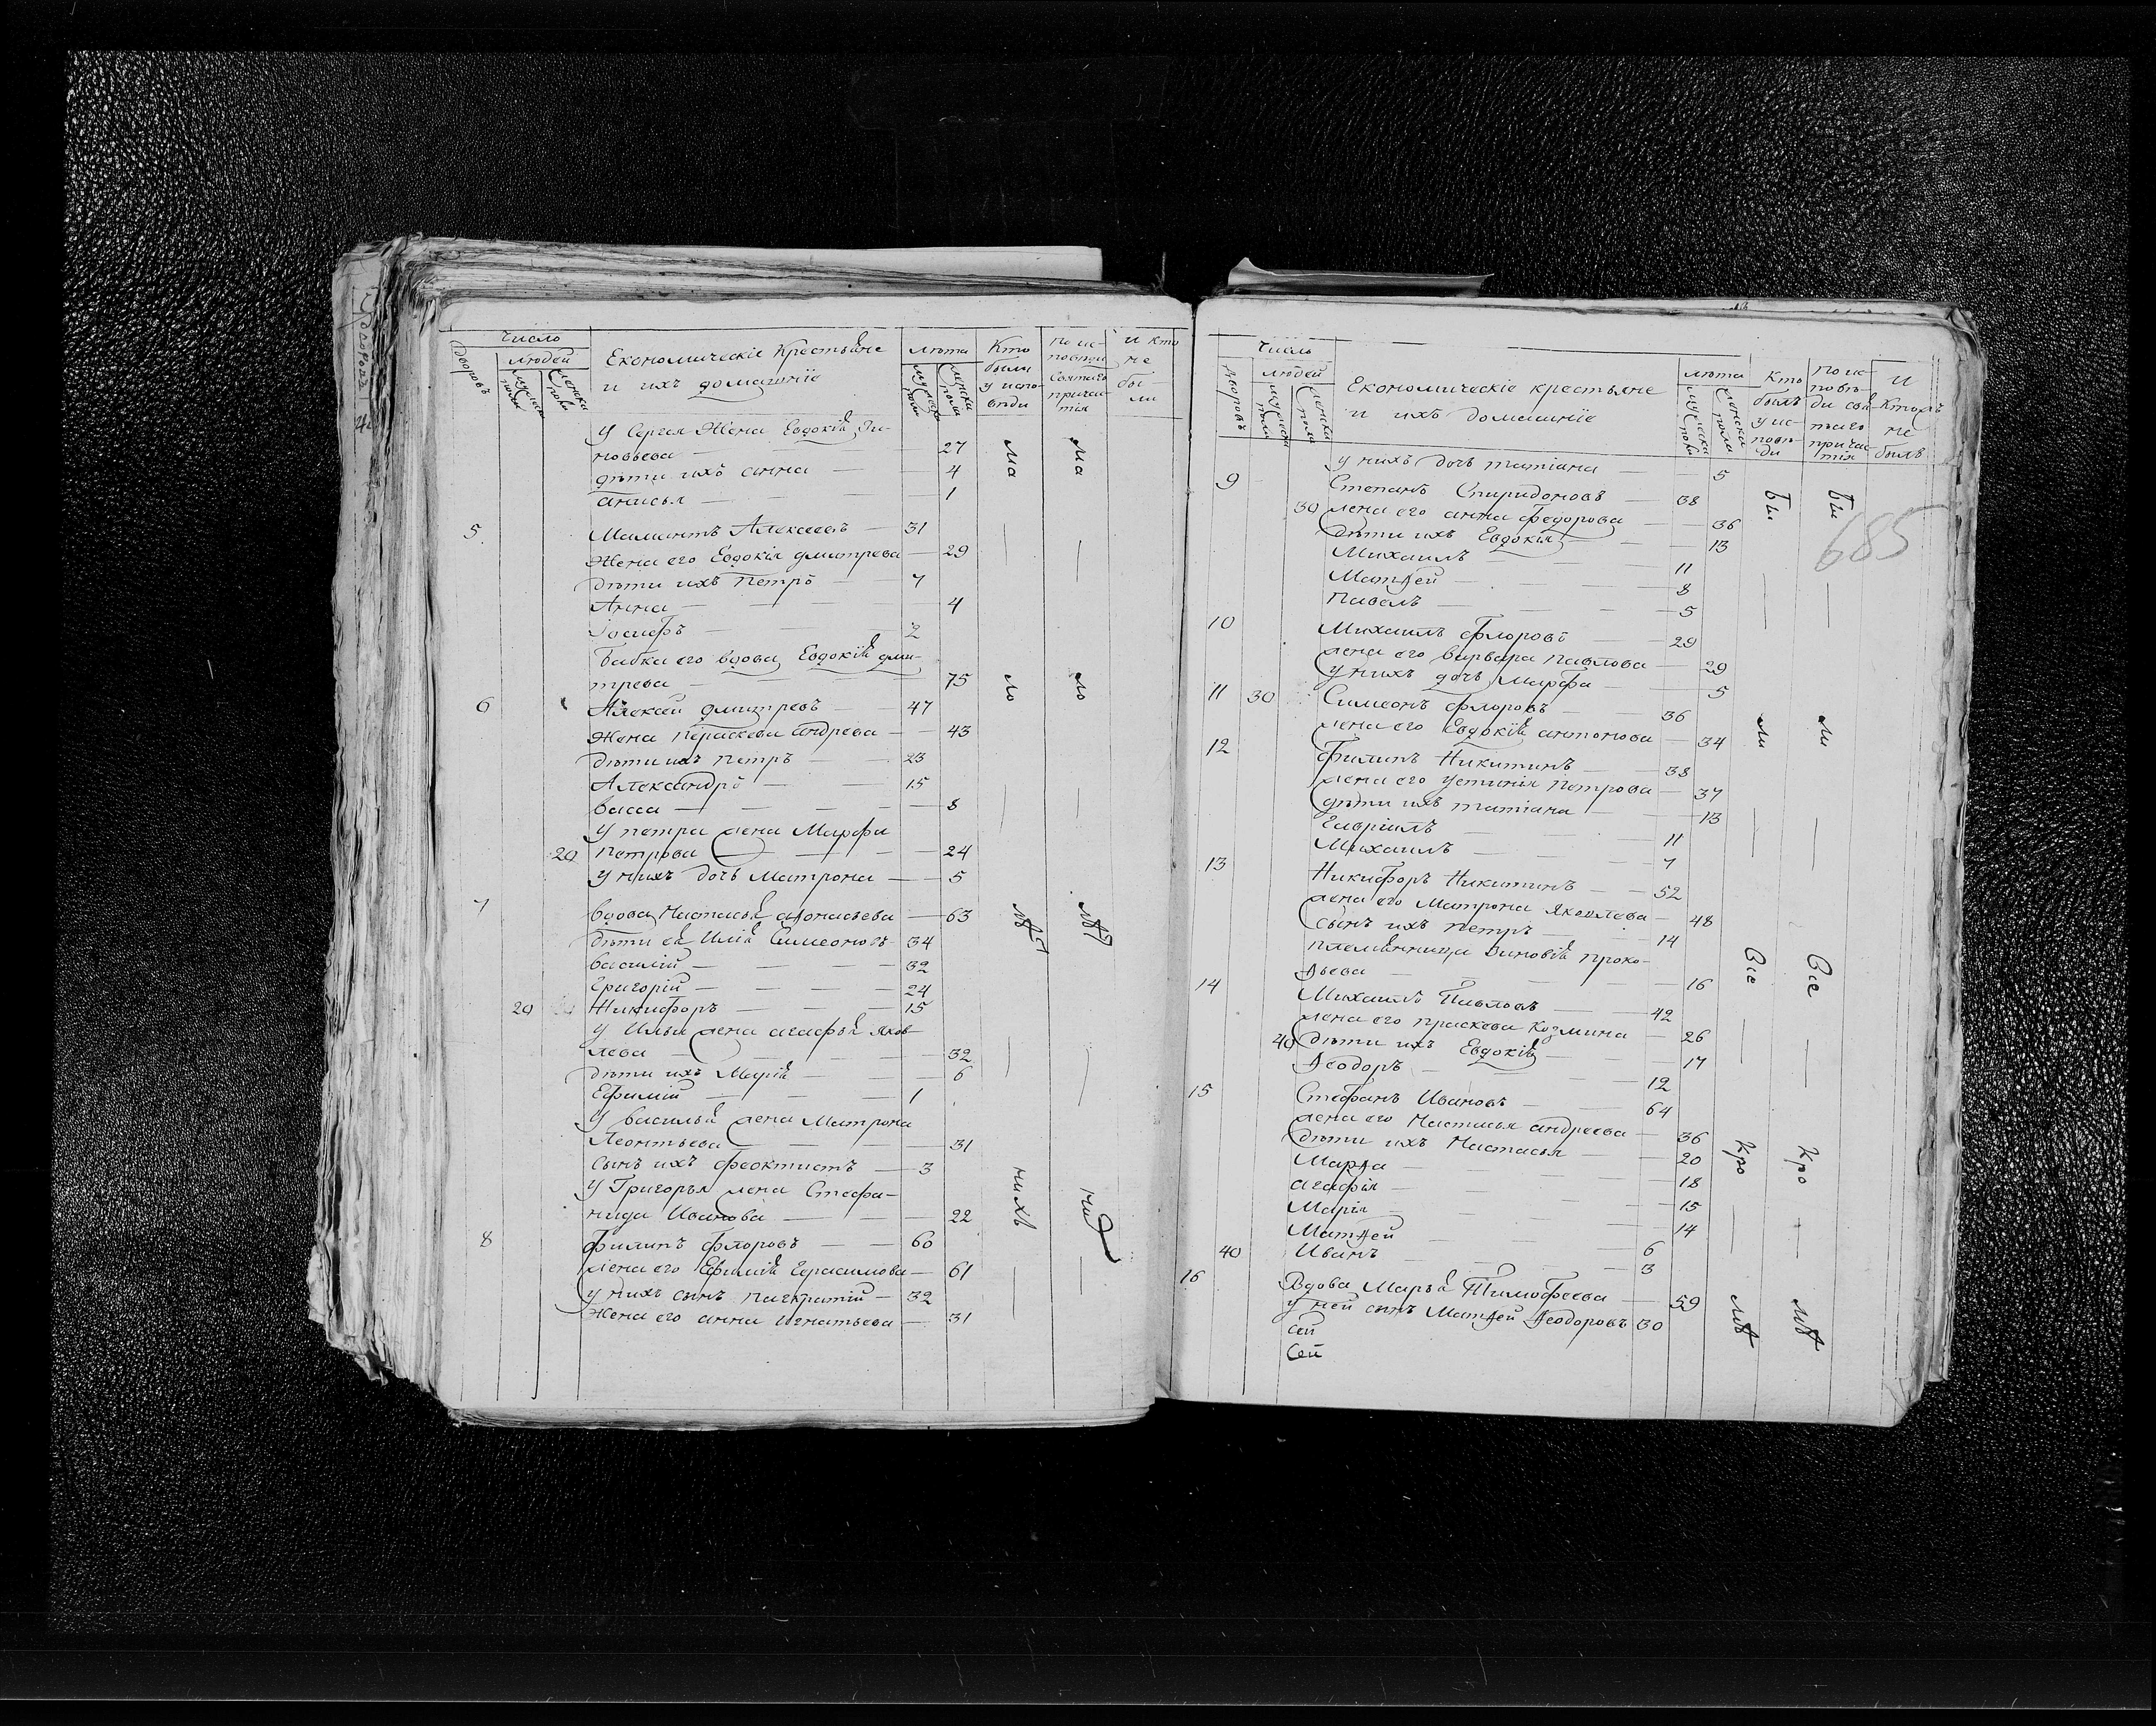 Число
Дворовъ
людей
мужеска полу
женска полу
Економическіе Крестьяне
и ихъ домашніе
лѣта
мужеска полу
женска полу
Кто были у испо-вѣди
по ис-повѣди святаго причас-тія
и кто не бы-ли
У Сергея Жена Евдокія Зи-
новьева — 27
дѣти ихъ анна — 4
анисья — 1
5. Мамантъ Алексеевъ — 31
Жена его Евдокія дмитрева — 29
дѣти ихъ Петръ — 7
Анна — 4
Іосифъ — 2
бабка его вдова Евдокія дми-
трева — 75
6 Алексей дмитревъ — 47
Жена Параскева андрева — 43
дѣти ихъ петръ — 23
Александръ — 15
васса — 8
У петра жена Марфа
20 Петрова — 24
У нихъ дочь Матрона — 5
7 вдова Настасья афонасьева — 63
дѣти ея Илія Симеоновъ 34
василій — 32
Григорій — 24
20 Никифоръ — 15
У Ильи жена агафья яков-
лева — 32
дѣти ихъ Марія — 6
Ефимій — 1
У василья жена Матрона
Леонтьева — 31
сынъ ихъ феоктистъ — 3
У Григорья жена Стефа-
нида Иванова — 22
8 филипъ флоровъ — 60
жена его Ефимія Герасимова — 61
у нихъ сынъ панкратій — 32
Жена его анна игнатьева — 31
ма ма
ло ло
лѣ лѣ
нихъ них
Число
дворовъ
людей
мужеска полу
женска полу
Економическіе крестьяне
и ихъ домашніе
лѣта
мужеска полу
женска полу
Кто былъ у ис-повѣ-ди
по ис-повѣ-ди свя-таго причас-тія
и Кто не былъ
685
у нихъ дочь татіана — 5
9 Степанъ Спиридоновъ — 38
30 жена его анна федорова — 36
дѣти ихъ Евдокія — 13
Михаилъ — 11
Матѳей — 8
Павелъ — 5
10 Михаилъ флоровъ — 29
жена его варвара павлова — 29
у нихъ дочь Марфа — 5
11 30 Симеонъ флоровъ — 36
жена его Евдокія антонова — 34
12 филипъ Никитинъ — 38
жена его устинія Петрова — 37
дѣти ихъ татіана — 13
Гавріилъ — 11
Михаилъ — 7
13 Никифоръ Никитинъ — 52
жена его Матрона Яковлева — 48
сынъ ихъ петръ — 14
племянница Зиновія проко-
ѳьева — 16
14 Михаилъ Павловъ — 42
жена его праскева Козмина — 26
40 дѣти ихъ Евдокія — 17
Ѳеодоръ — 12
15 Стефанъ Ивановъ — 64
жена его Настасья андреева — 36
дѣти ихъ Настасья — 20
Марѳа — 18
агафія — 15
Марія — 14
Матѳей — 6
40 Иванъ — 3
16 Вдова Марья Тимофеева — 59
У ней сынъ Матѳей Ѳеодоровъ 30
сей
Сей
бы бы
ли ли
Все Все
Кро Кро
мѣ мѣ